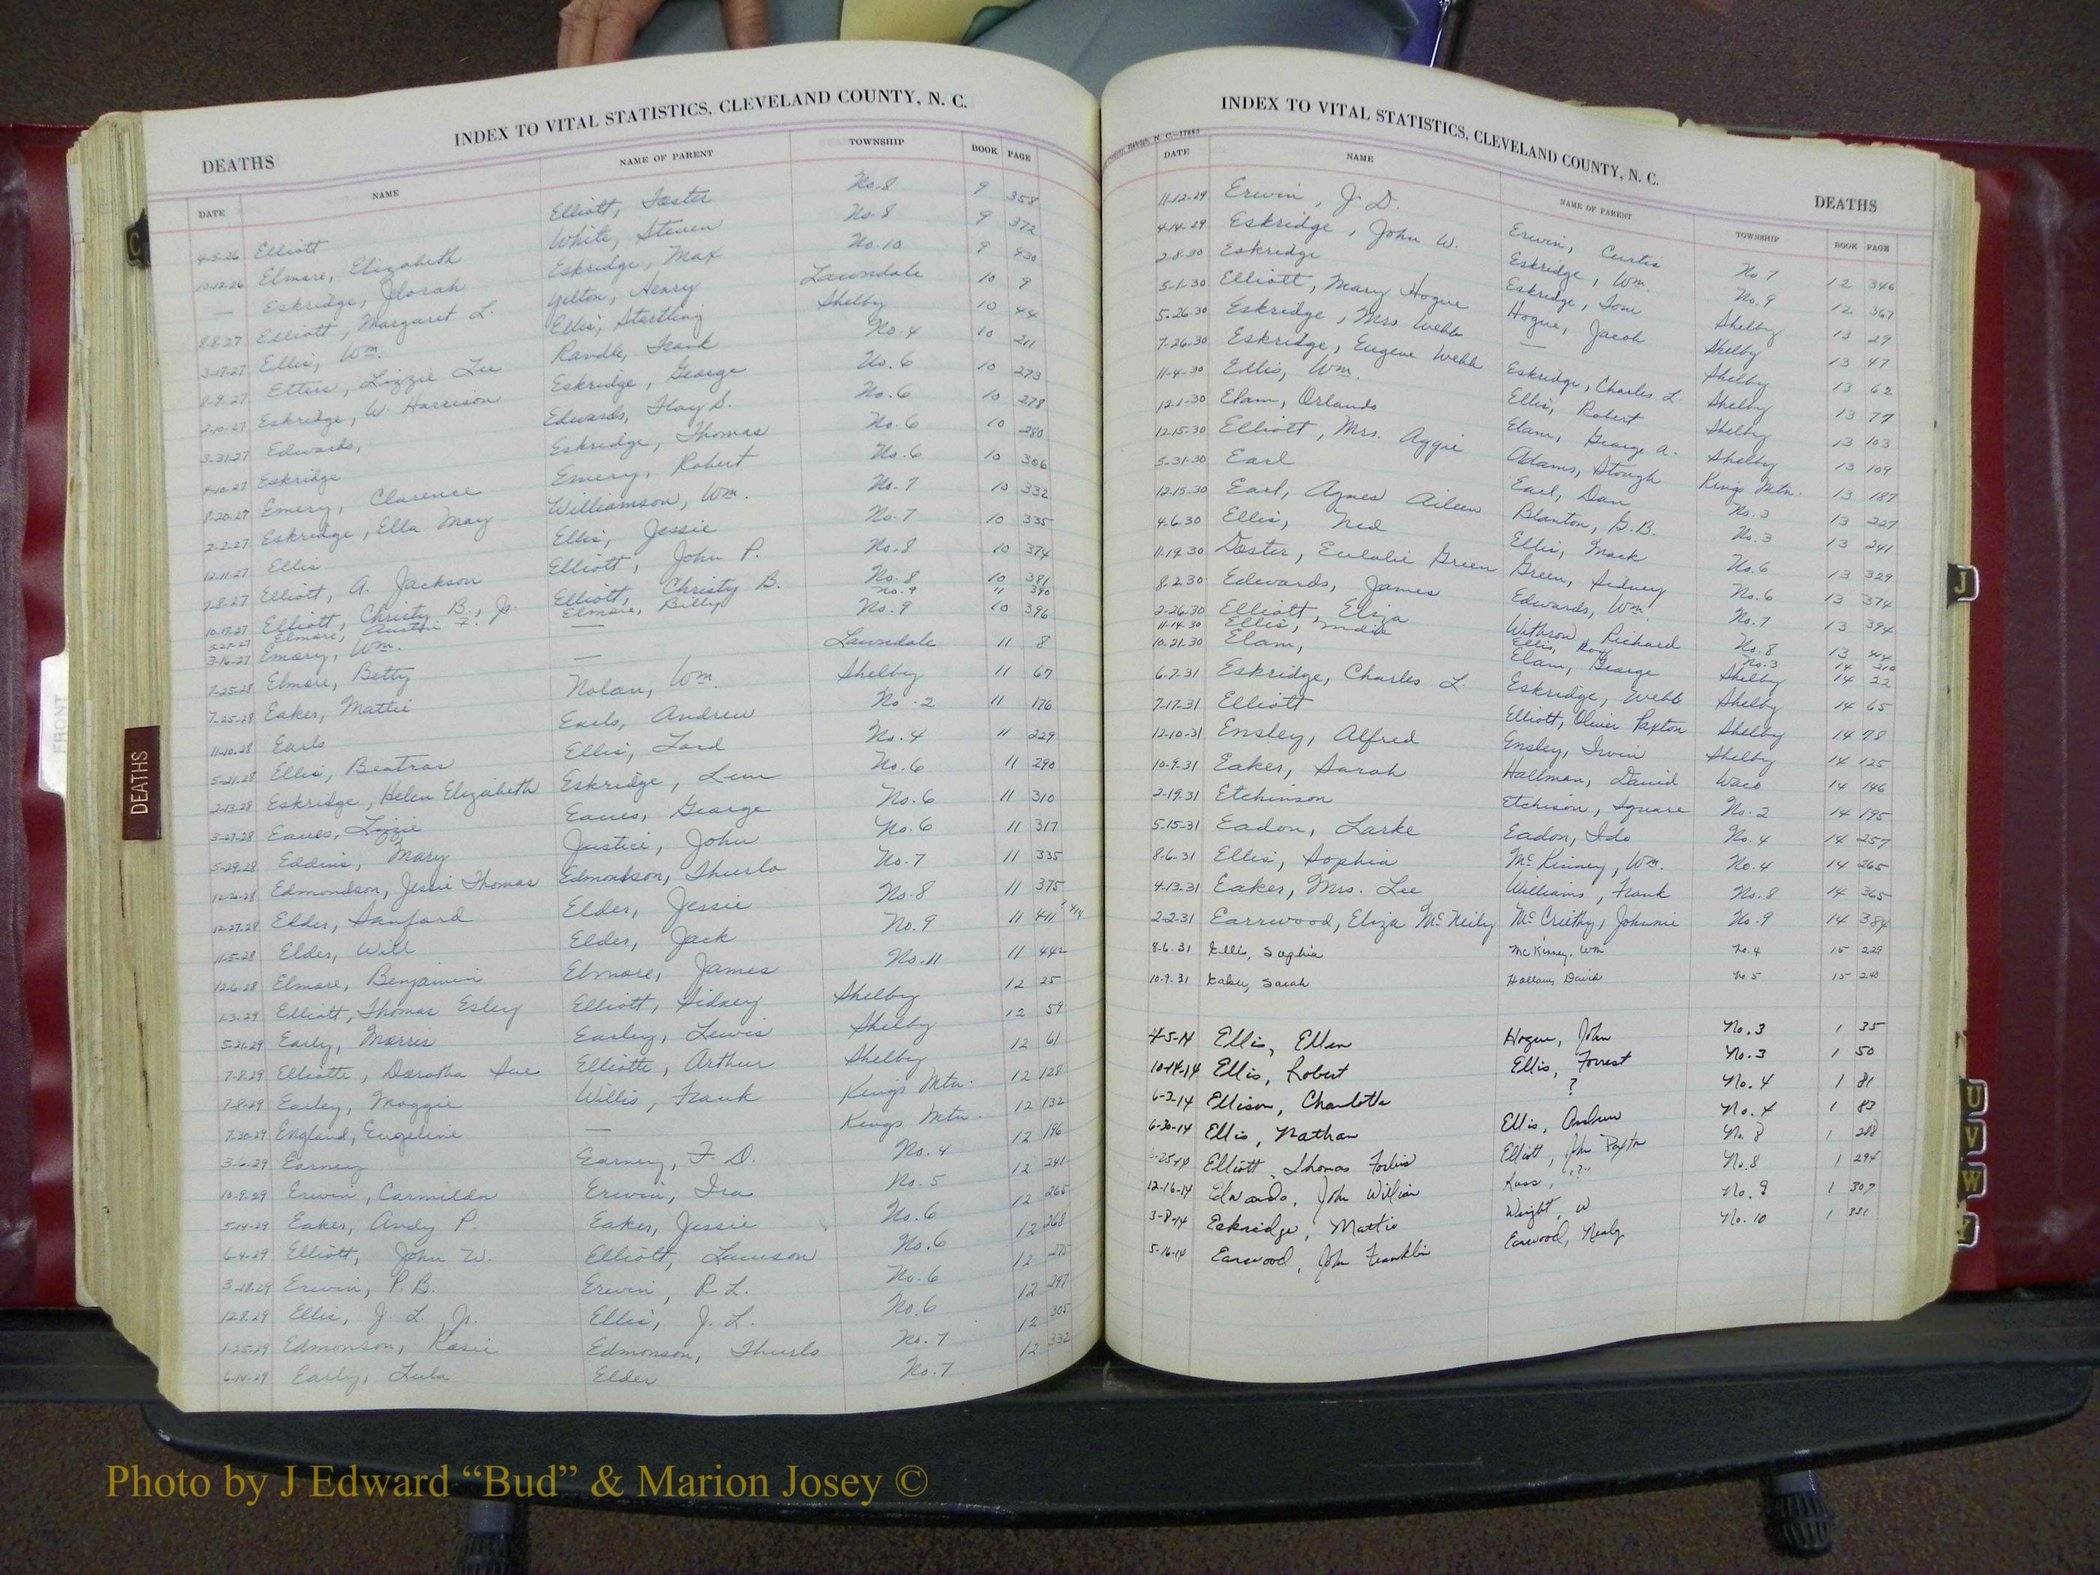 INDEX TO VITAL STATISTICS, CLEVELAND COUNTY, N. C.
DEATHS
DATE NAME NAME OF PARENT TOWNSHIP BOOK PAGE
4-5-26 Elliott Elliott, Foster No. 8 9 358
10-12-26 Elmore, Elizabeth White, Steven No. 8 9 372
— Eskridge, Eskridge, Max No. 10 9 430
8-8-27 Elliott, Margaret L. Yelton, Henry Lawndale 10 9
3-17-27 Ellis, Wm. Ellis, Startling Shelby 10 44
8-9-27 Etters, Lizzie Lee Randle, Frank No. 4 10 211
2-10-27 Eskridge, W. Harrison Eskridge, George No. 6 10 273
3-31-27 Edwards, Edwards, Hoy S. No. 6 10 278
4-10-27 Eskridge Eskridge, Thomas No. 6 10 280
8-20-27 Emery, Clarence Emery, Robert No. 6 10 306
2-2-27 Eskridge, Ella May Williamson, Wm. No. 7 10 332
12-11-27 Ellis Ellis, Jessie No. 7 10 335
7-8-27 Elliott, A. Jackson Elliott, John P. No. 8 10 374
10-17-27 Elliott, Christy B., Jr. Elliott, Christy B. No. 8 10 381
5-27-27 Elmore, Austin F. Elmore, Billy No. 9 11 390
3-16-27 Emory, Wm. — No. 9 10 396
7-25-28 Elmore, Betty — Lawndale 11 8
7-25-28 Eaker, Mattie Nolan, Wm. Shelby 11 67
11-10-28 Earls Earls, Andrew No. 2 11 176
5-21-28 Ellis, Beatras Ellis, Ford No. 4 11 229
2-13-28 Eskridge, Helen Elizabeth Eskridge, Lem No. 6 11 290
3-27-28 Eaves, Lizzie Eaves, George No. 6 11 310
5-29-28 Eddins, Mary Justice, John No. 6 11 317
12-26-28 Edmondson, Jessie Thomas Edmondson, Thurlo No. 7 11 335
12-27-28 Elder, Sanford Elder, Jessie No. 8 11 375
11-5-28 Elder, Will Elder, Jack No. 9 11 411 & 414
12-6-28 Elmore, Benjamin Elmore, James No. 11 11 442
1-3-29 Elliott, Thomas Esley Elliott, Sidney Shelby 12 25
5-21-29 Early, Morris Earley, Lewis Shelby 12 59
7-8-29 Elliotte, Dorotha Sue Elliotte, Arthur Shelby 12 61
7-8-29 Earley, Maggie Willis, Frank Kings Mtn. 12 128
7-30-29 England, Eugeline — Kings Mtn. 12 132
3-6-29 Earney Earney, F. D. No. 4 12 196
10-9-29 Erwin, Carmilda Erwin, Ira No. 5 12 241
5-14-29 Eaker, Andy P. Eaker, Jessie No. 6 12 265
6-4-29 Elliott, John W. Elliott, Lawson No. 6 12 268
3-18-29 Erwin, P. B. Erwin, R. L. No. 6 12 275
12-8-29 Ellis, J. L. Jr. Ellis, J. L. No. 6 12 297
1-25-29 Edmonson, Rosie Edmonson, Thurlo No. 7 12 305
6-14-29 Early, Lula Elder No. 7 12 332
INDEX TO VITAL STATISTICS, CLEVELAND COUNTY, N. C.
DEATHS
DATE NAME NAME OF PARENT TOWNSHIP BOOK PAGE
11-12-29 Erwin, J. D. Erwin, Curtis No. 7 12 346
4-14-29 Eskridge, John W. Eskridge, Wm. No. 9 12 367
2-8-30 Eskridge Eskridge, Tom Shelby 13 29
5-1-30 Elliott, Mary Hogue Hogue, Jacob Shelby 13 47
5-26-30 Eskridge, Mrs. Webb — Shelby 13 62
7-26-30 Eskridge, Eugene Webb Eskridge, Charles L. Shelby 13 77
11-4-30 Ellis, Wm. Ellis, Robert Shelby 13 103
12-1-30 Elam, Orlando Elam, George A. Shelby 13 109
12-15-30 Elliott, Mrs. Aggie Adams, Stough Kings Mtn. 13 187
5-31-30 Earl Earl, Dan No. 3 13 227
12-15-30 Earl, Agnes Aileen Blanton, G. B. No. 3 13 241
4-6-30 Ellis, Ned Ellis, Mack No. 6 13 329
11-19-30 Eulalie Green Green, Sidney No. 6 13 374
8-2-30 Edwards, James Edwards, Wm. No. 7 13 394
2-26-30 Elliott, Eliza Withrow, Richard No. 8 13 414
11-14-30 Ellis, Ellis, Hoyt No. 3 14 210
10-21-30 Elam, Elam, George Shelby 14 22
6-7-31 Eskridge, Charles L. Eskridge, Webb Shelby 14 65
7-17-31 Elliott Elliott, Oliver Paxton Shelby 14 78
12-10-31 Ensley, Alfred Ensley, Irvin Shelby 14 125
10-9-31 Eaker, Sarah Hallman, David Waco 14 146
2-19-31 Etchinson Etchison, Square No. 2 14 195
5-15-31 Eadon, Larke Eadon, Ido No. 4 14 257
8-6-31 Ellis, Sophia McKinney, Wm. No. 4 14 265
4-13-31 Eaker, Mrs. Lee Williams, Frank No. 8 14 365
2-2-31 Earrwood, Eliza McNeily McCruthy, Johnnie No. 9 14 384
8-6-31 Ellis, Sophia McKinney, Wm No. 4 15 229
10-9-31 Eaker, Sarah David No 5 15 240
4-5-14 Ellis, Ellen Hogue, John No. 3 1 35
10-14-14 Ellis, Robert Ellis, Forrest No. 3 1 50
6-2-14 Ellison, Charlotte ? No. 4 1 81
6-30-14 Ellis, Nathan Ellis, Andrew No. 4 1 83
Elliott, Thomas Forbis Elliott, John Paxton No. 8 1 288
12-16-14 Edwards, John William Ross, "?" No. 8 1 294
3-8-14 Eskridge, Mattie Wright, W No. 9 1 307
5-16-14 Earwood, John Franklin Earwood, Nealy No. 10 1 331
C
FRONT
DEATHS
J
U
V
W
Photo by J Edward “Bud” & Marion Josey ©